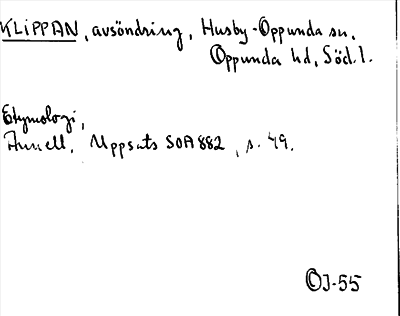 KLIPPAN, avsöndring, Husby-Oppunda sn,
Oppunda hd, Söd. l.
Etymologi,
Annell, Uppsats SOA 882, s. 49.
OJ-55